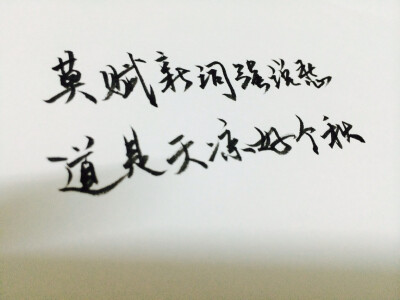 莫赋新词强说愁
道是天凉好个秋